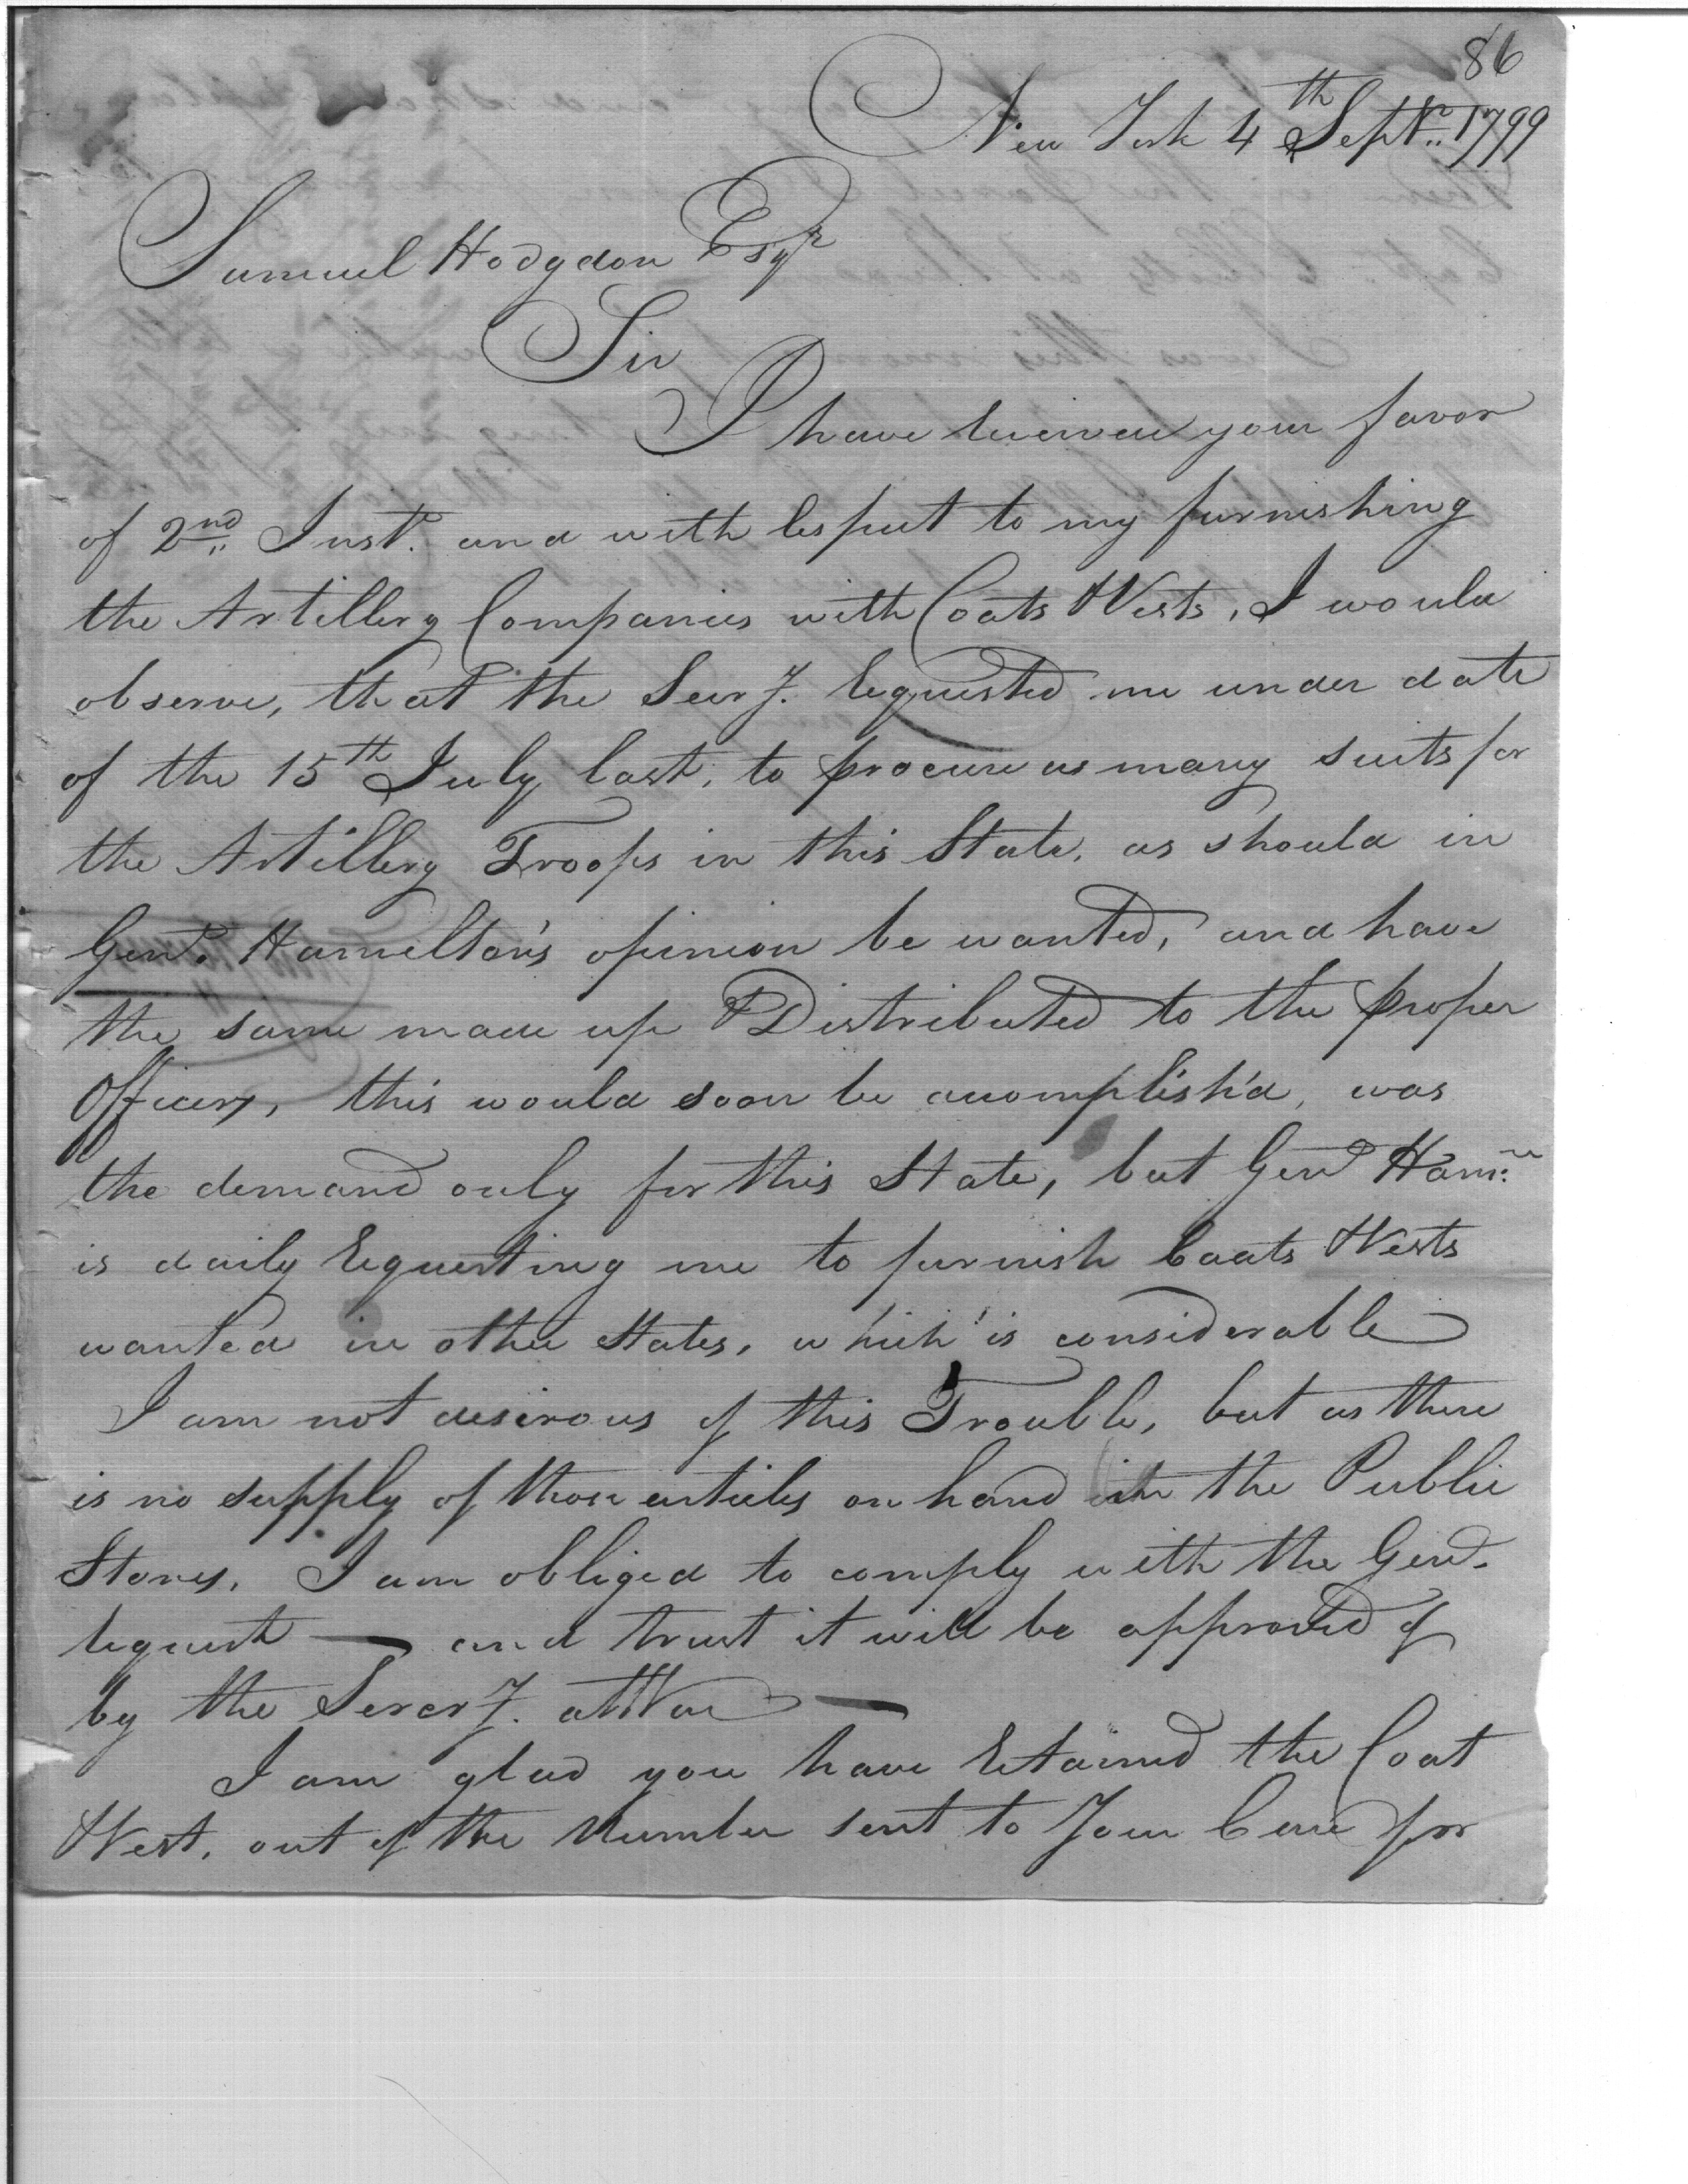 86
New York 4th Septr. 1799
Samuel Hodgdon Esqr
Sir
I have received your favor
of 2nd Inst. and with respect to my furnishing
the Artillery Companies with Coats & Vests, I would
observe, that the Secry. requested me under date
of the 15th July last, to procure as many suits for
the Artillery Troops in this State, as should in
Genl. Hamilton's opinion be wanted, and have
the same made up & Distributed to the proper
Officers, this would soon be accomplish'd, was
the demand only for this State, but Genl Hamn.
is daily requesting me to furnish Coats & Vests
wanted in other States, which is considerable
I am not desirous of this Trouble, but as there
is no supply of those articles on hand in the Public
Stores, I am obliged to comply with the Genl.
request — and trust it will be approved of
by the Secry. at War —
I am glad you have retained the Coat
& Vest, out of the Number sent to Your Care for